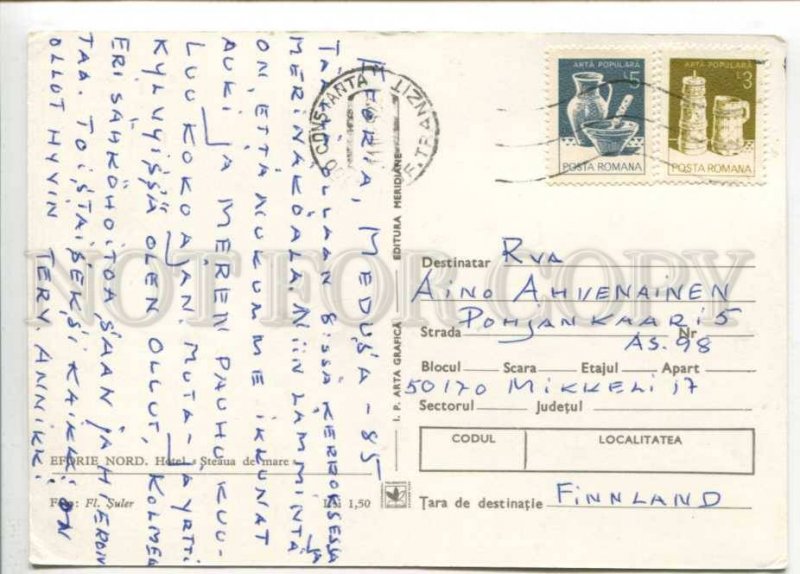 EFORIA, MEDUSA -85
TÄÄLLÄ OLLAAN 8:SSA KERROKSESSA
MERINÄKÖALA. NIIN LÄMMINTÄ
ON, ETTÄ NUKUMME IKKUNAT
AUKI JA MEREN PAUHU KUU-
LUU KOKO AJAN. MUTA- JA YRTTI
KYLVYISSÄ OLEN OLLUT, KOLMEA
ERI SÄHKÖHOITOA SAAN JA HIERON
TAA. TOISTAISEKSI KAIKKI ON
OLLUT HYVIN TERV. ANNIKKI
CONSTANTA
TRANZIT
ARTĂ POPULARĂ
L5
POSTA ROMANA
ARTĂ POPULARĂ
L3
POSTA ROMANA
I. P. ARTA GRAFICĂ EDITURA MERIDIANE
Destinatar Rva
AINO AHVENAINEN
Strada POHJANKAARI 5 Nr
AS. 98
Blocul Scara Etajul Apart
50170 MIKKELI 17
Sectorul Județul
CODUL LOCALITATEA
Țara de destinație FINNLAND
EFORIE NORD. Hotel «Steaua de mare»
Foto: Fl. Șuler
Lei 1,50
NOT FOR COPY